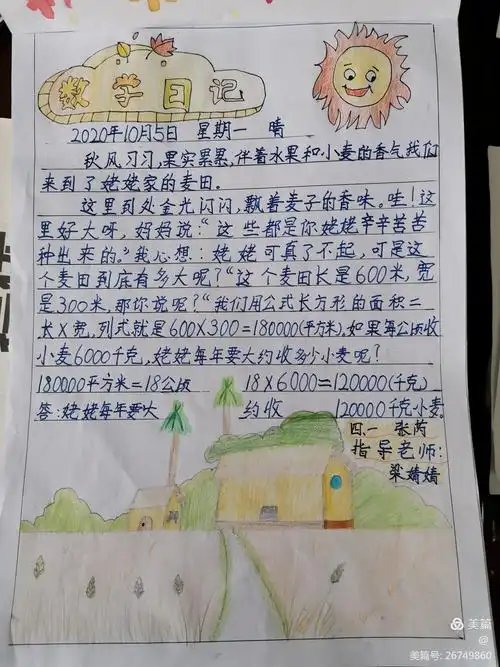 数学日记
2020年10月5日 星期一 晴
秋风习习,果实累累,伴着水果和小麦的香气我们
来到了姥姥家的麦田。
这里到处金光闪闪,飘着麦子的香味。哇!这
里好大呀,妈妈说:“这些都是你姥姥辛辛苦苦
种出来的。”我心想:姥姥可真了不起,可是这
个麦田到底有多大呢?“这个麦田长是600米,宽
是300米,那你说呢?“我们用公式长方形的面积=
长X宽,列式就是600X300=180000(平方米),如果每公顷收
小麦6000千克,姥姥每年要大约收多少小麦呢?
180000平方米=18公顷 18X6000=120000(千克)
答:姥姥每年要大 约收 120000千克小麦。
四.一 张芮
指导老师:
梁婧婧
美篇
@
美篇号: 26749860